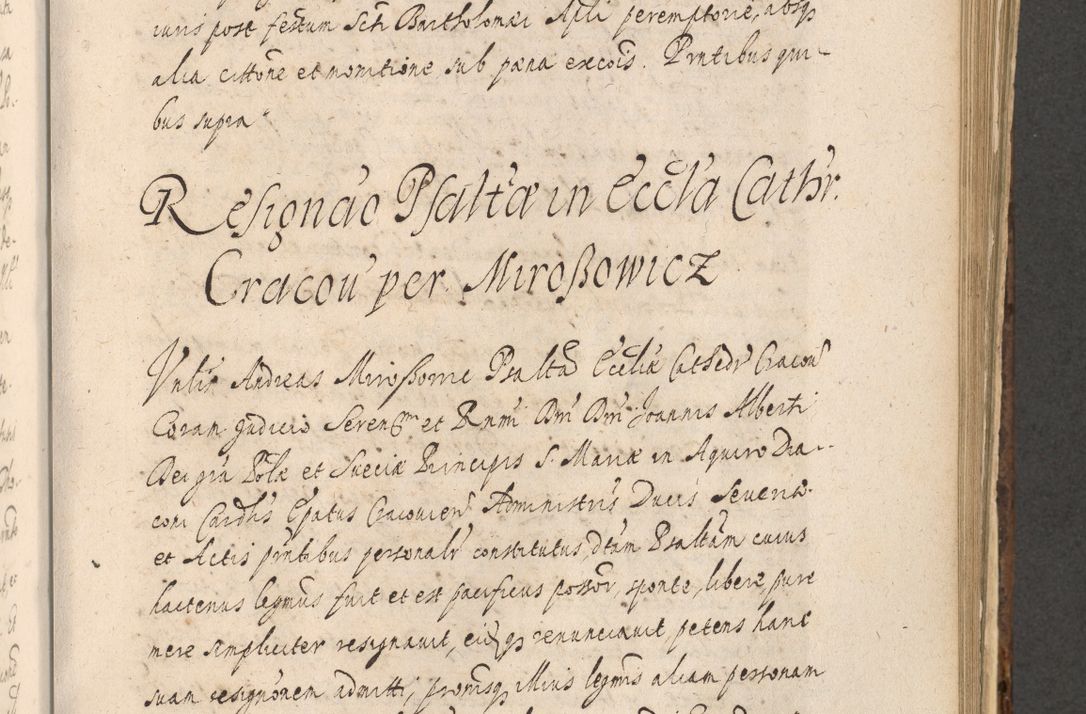 iuris post festum Scti Bartholomæi Apli peremptorie, absq
alia cittone et monitione sub pæna excois. Pntibus qui-
bus supra
Resignao Psaltæ in Eccla Cathr.
Cracou per Miroßowicz
Vnlis Andreas Miroßowic Psalta Eccliæ Cathedr Cracou
Coram Judicio Seren et Rnmi Dni Dni Joannis Alberti
Dei gra Polæ et Sueciæ Principis S. Mariæ in Aquiro Dia-
coni Cardlis Epatus Cracouien Administris Ducis Seueriæ.
et Actis pntibus personalr constitutus, dtam Psaltam cuius
hactenus legmus fuit et est pacificus possor, sponte, libere, pure
mere simpliciter resignauit, eiq renunciauit, petens hanc
suam resignonem admitti, promisq illius legmis aliam personam